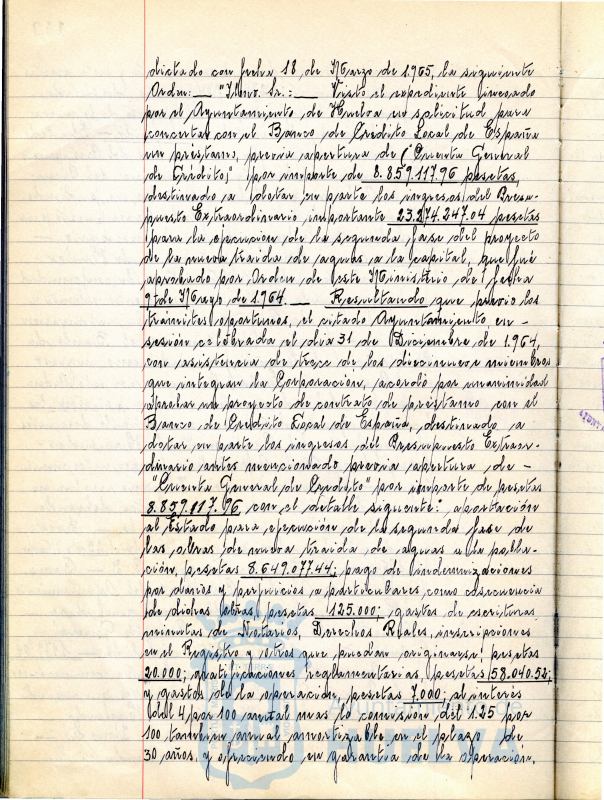 dictado con fecha 18 de Marzo de 1.965, la siguiente
Orden: — "Ilmo. Sr.: — Visto el expediente incoado
por el Ayuntamiento de Huelva en solicitud para
concertar con el Banco de Crédito Local de España
un préstamo, previa apertura de "Cuenta General
de Crédito," por importe de 8.859.117.96 pesetas,
destinado a dotar en parte los ingresos del Presu-
puesto Extraordinario importante 23.274.247.04 pesetas
para la ejecución de la segunda fase del proyecto
de la nueva traida de aguas a la capital, que fué
aprobado por Orden de este Ministerio de fecha
9 de Mayo de 1.964. — Resultando que previo los
trámites oportunos, el citado Ayuntamiento en -
sesión celebrada el dia 31 de Diciembre de 1.964,
con asistencia de trece de los diecinueve miembros
que integran la Corporación, acordó por unanimidad
aprobar un proyecto de contrato de préstamo con el
Banco de Credito Local de España, destinado a
dotar en parte los ingresos del Presupuesto Extraor-
dinario antes mencionado previa apertura de -
"Cuenta General de Credito" por importe de pesetas
8.859.117.96 con el detalle siguiente: aportación
al Estado para ejecución de la segunda fase de
las obras de nueva traida de aguas a la pobla-
ción, pesetas 8.649.077.44; pago de indemnizaciones
por daños y perjuicios a particulares como consecuencia
de dichas obras, pesetas 125.000; gastos de escrituras
minutas de Notarios, Derechos Reales, inscripciones
en el Registro y otros que puedan originarse, pesetas
20.000; gratificaciones reglamentarias, pesetas 58.040.52;
y gastos de la operación, pesetas 7.000; al interés
del 4 por 100 anual mas la comisión del 1.25 por
100 tambien anual amortizable en el plazo de
30 años, y ofreciendo en garantia de la operación,
Ayuntamiento de
HUELVA